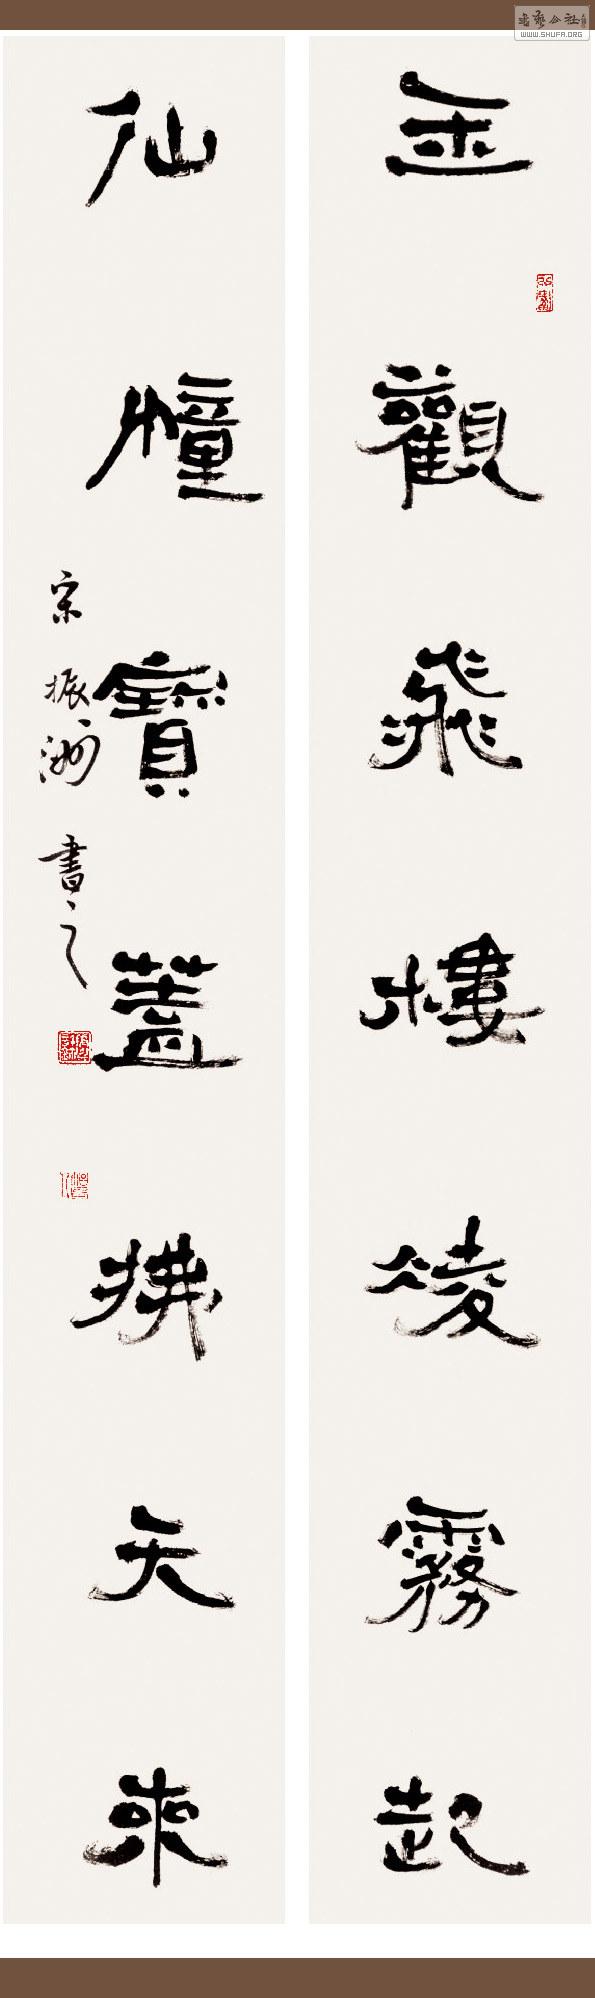 玉觀飛樓凌霧起
仙幢寶蓋拂天來
宋振洲書之
WWW.SHUFA.ORG